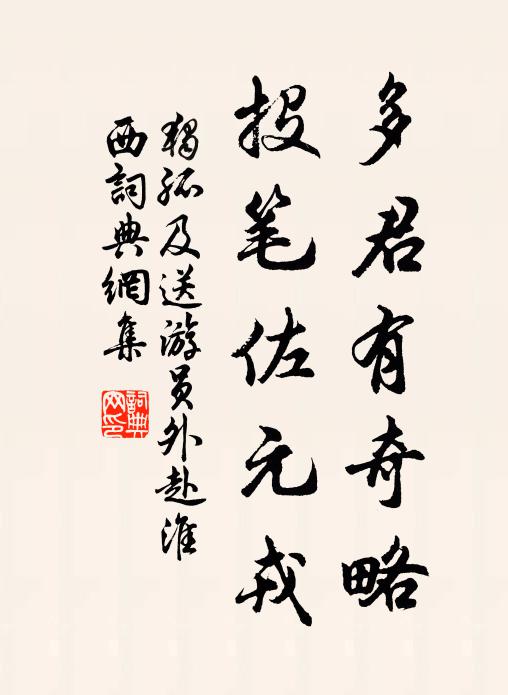 多君有奇略
投笔佐元戎
獨孤及送游员外赴淮
西詞典網集
詞典
网印